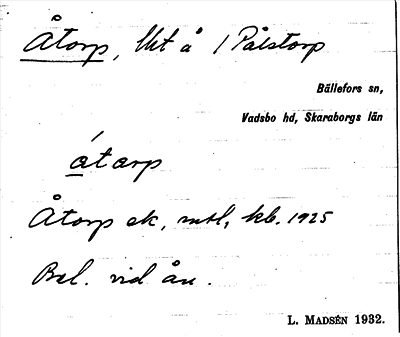 Åtorp, lht å 1 Pålstorp
Bällefors sn,
Vadsbo hd, Skaraborgs län
átarp
Åtorp ek, mtl, kb. 1925
Bel. vid ån.
L. MADSÉN 1932.